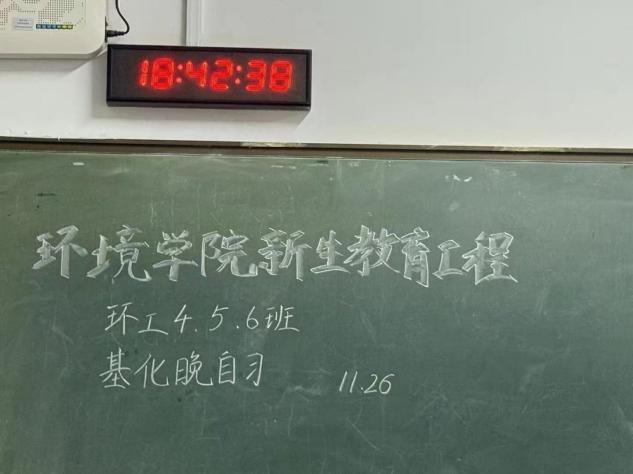 18:42:38
环境学院新生教育工程
环工4.5.6班
基化晚自习 11.26